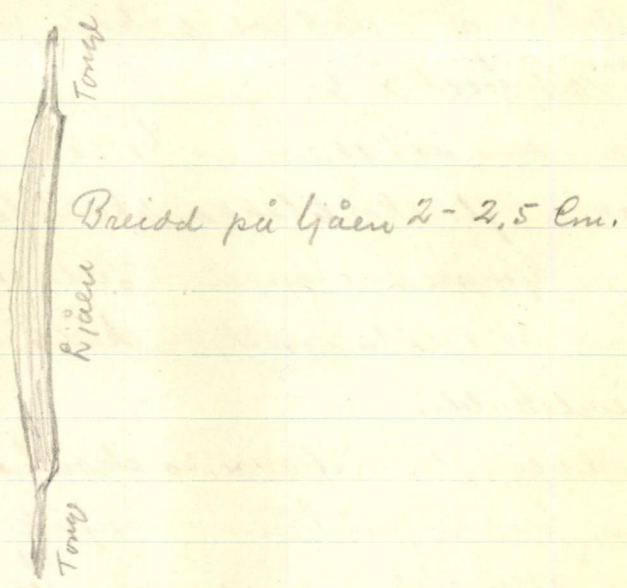 Tonge
Breidd på ljåen 2 - 2,5 Cm.
Ljåen
Tonge